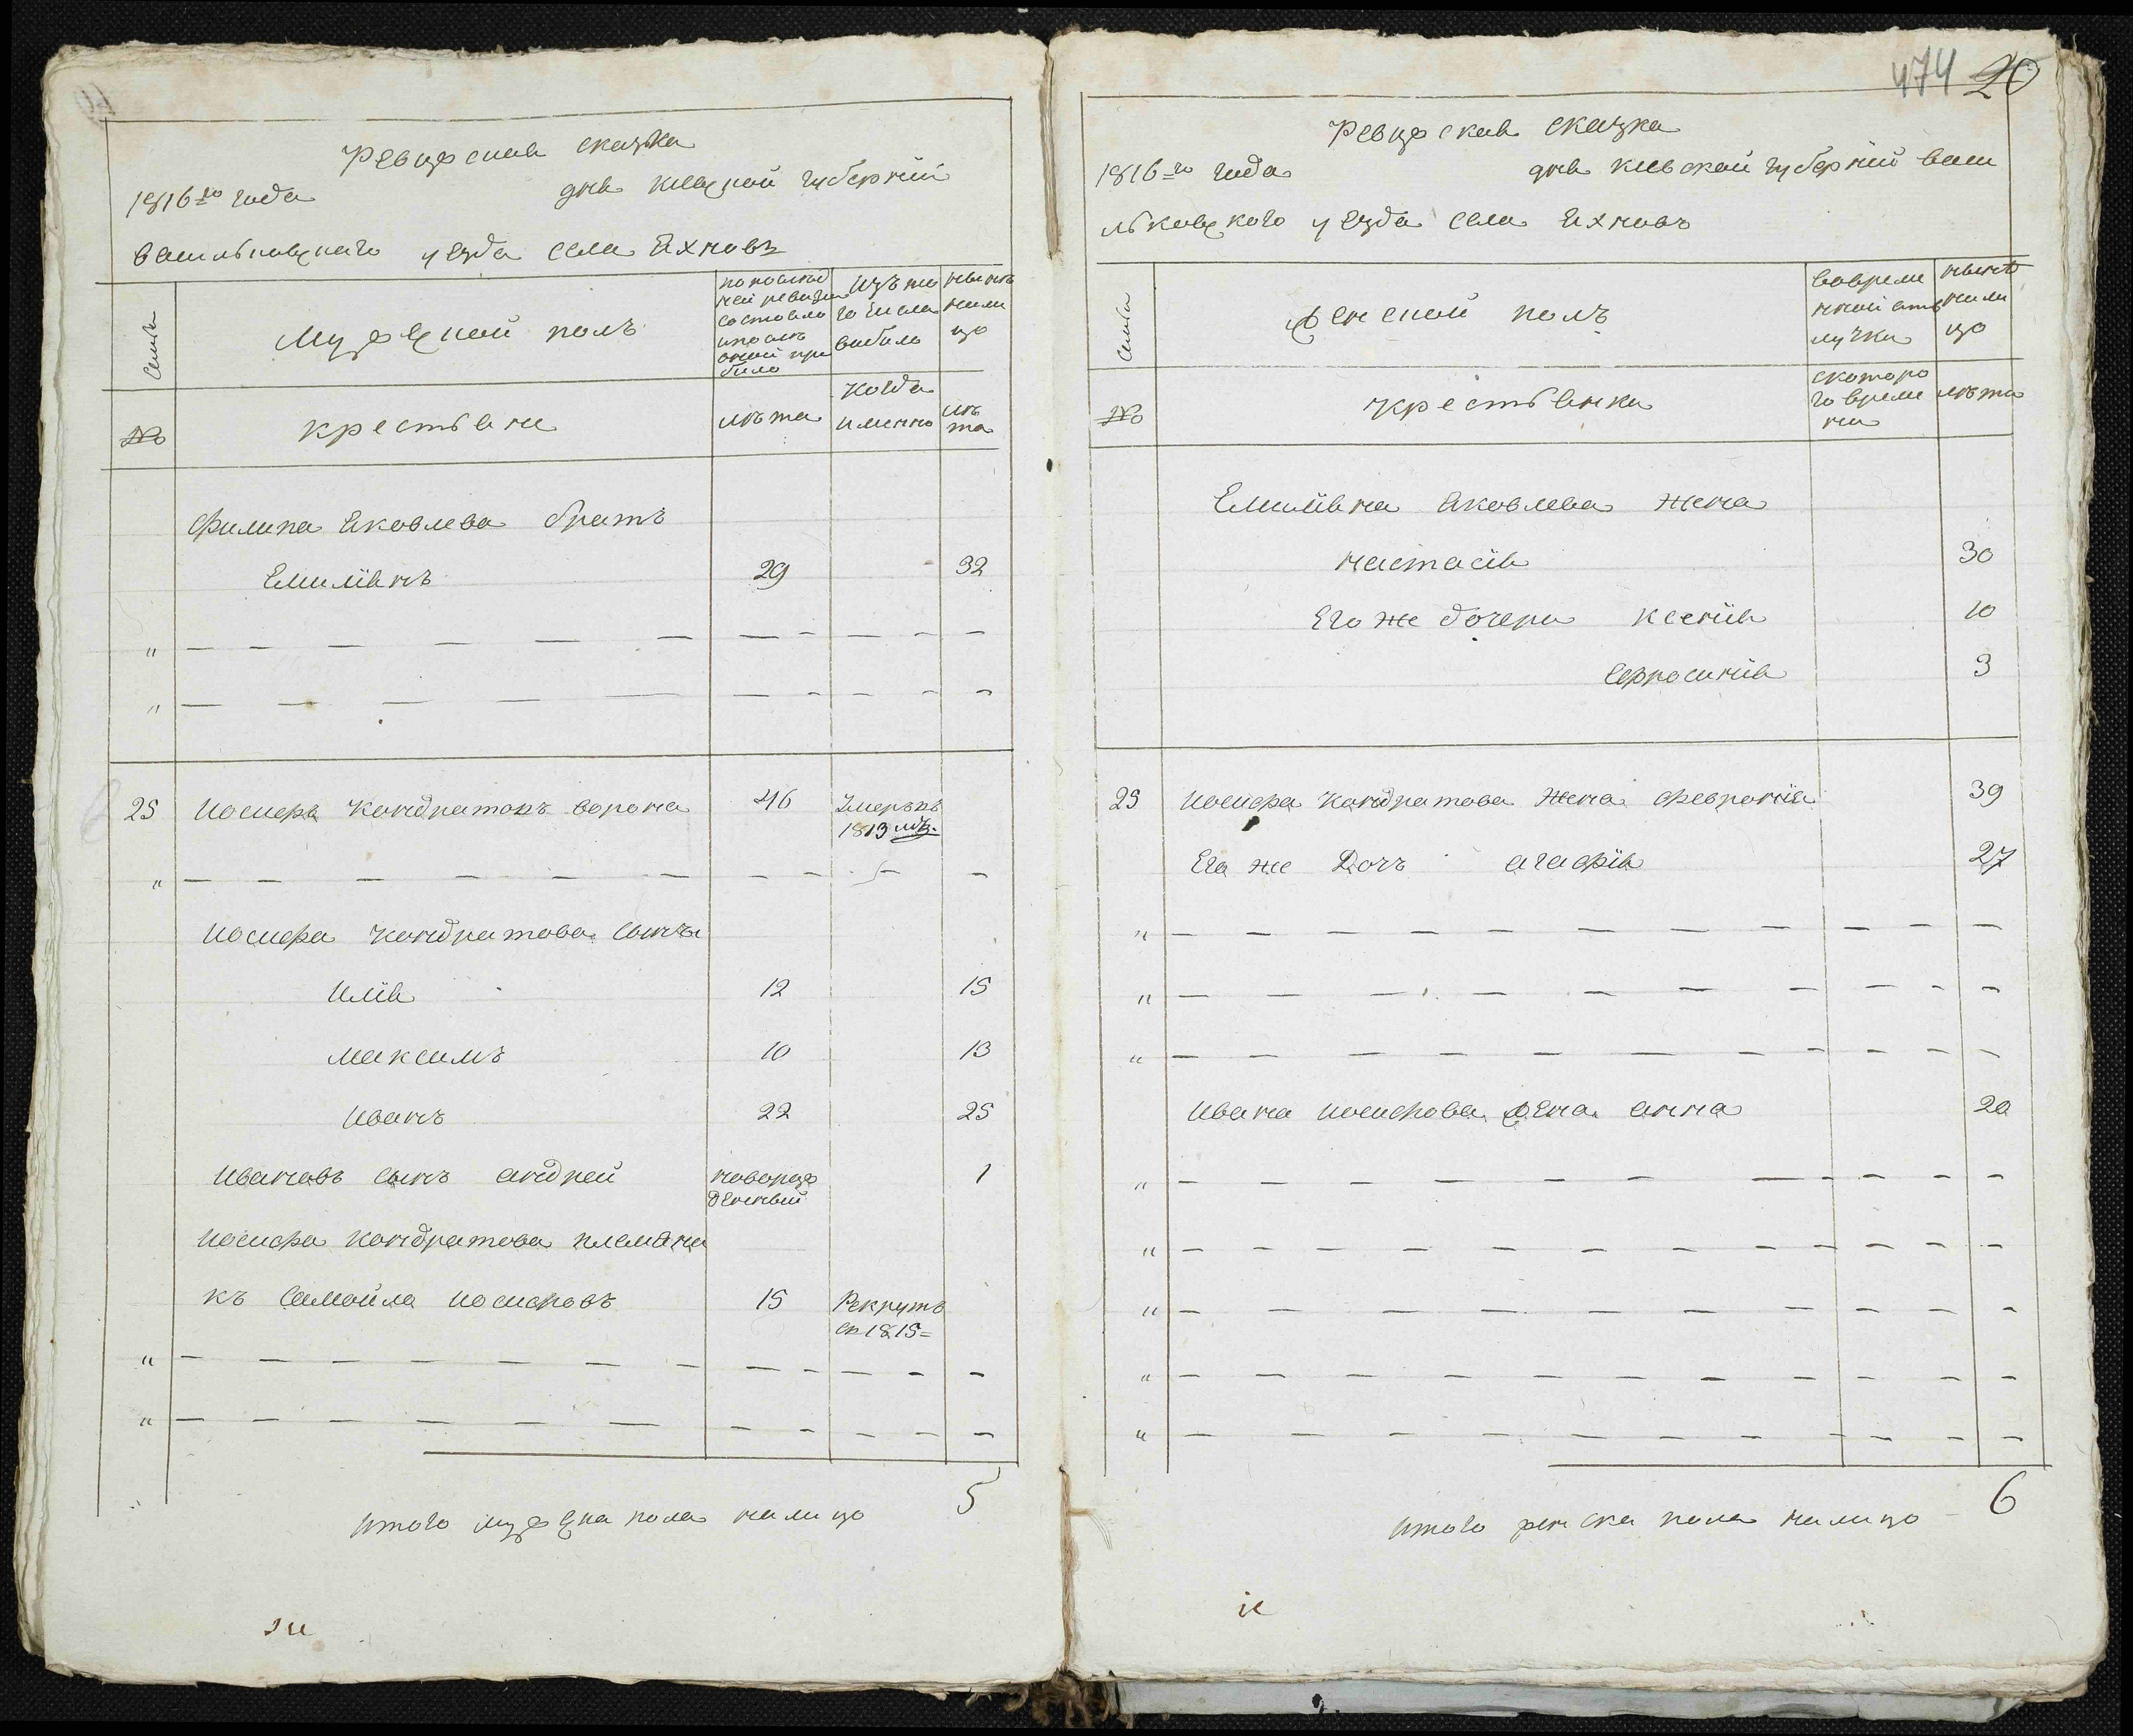 Ревизская сказка
1816го года дня киевской губерний
васильковского уезда села Яхновъ
Семьи
Мужеской полъ
по последней ревизий состояло и после оной прибыло
Изъ того числа выбыло
ныне на лицо
№
крестьяне
лета
Когда именно
лета
Филипа Яковлева братъ
Емилiянъ 29 32
" — — — — — — — — — —
" — — — — — — — — — —
25 иосифъ кондратовъ ворона 46 Умеръ въ
1813 мъ.
" — — — — — — — — — —
иосифа кондратова сынъ
илiя 12 15
максимъ 10 13
иванъ 22 25
ивановъ сынъ андрей новорожденный 1
иосифа кондратова племяни
къ Самойла иосифовъ 15 Рекрутъ
въ 1815=
" — — — — — — — — — — —
" — — — — — — — — — — —
итого мужеска пола налицо 5
474 20
Ревизская сказка
1816го года дня киевской губерний васи
льковского уезда села Яхновъ
Семьи
Женской полъ
во временной отлучки
ныне налицо
№
крестьянки
с которого времени
лета
Емилiяна Яковлева жена
настасiя 30
Его же дочери ксенiя 10
Ефросинiя 3
25 иосифа кондратова жена феврониiя 39
Его же Дочь агафiя 27
" — — — — — — — — — —
" — — — — — — — — — —
" — — — — — — — — — —
ивана иосифова жена анна 20
" — — — — — — — — — —
" — — — — — — — — — —
" — — — — — — — — — —
" — — — — — — — — — —
" — — — — — — — — — —
итого женска пола налицо 6